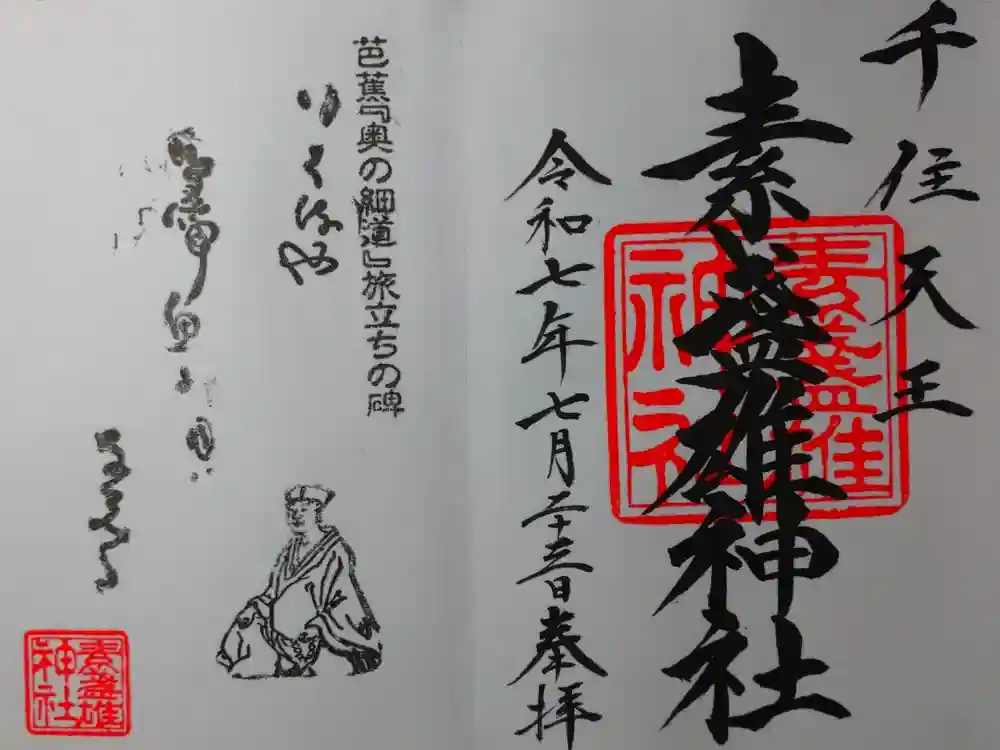 千住天王
素盞雄神社
素盞雄
神社
令和七年七月二十三日奉拝
芭蕉『奥の細道』旅立ちの碑
行く春や
鳥啼魚の目ハ
なみだ
素盞雄
神社